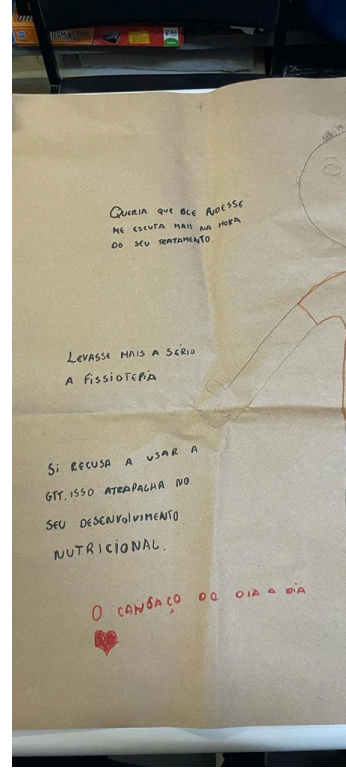 QUERIA QUE ELE PUDESSE
ME ESCUTA MAIS NA HORA
DO SEU TRATAMENTO.
LEVASSE MAIS A SÉRIO
A FISSIOTEPIA
SI RECUSA A USAR A
GTT. ISSO ATRAPALHA NO
SEU DESENVOLVIMENTO
NUTRICIONAL.
O CANSAÇO DO DIA A DIA